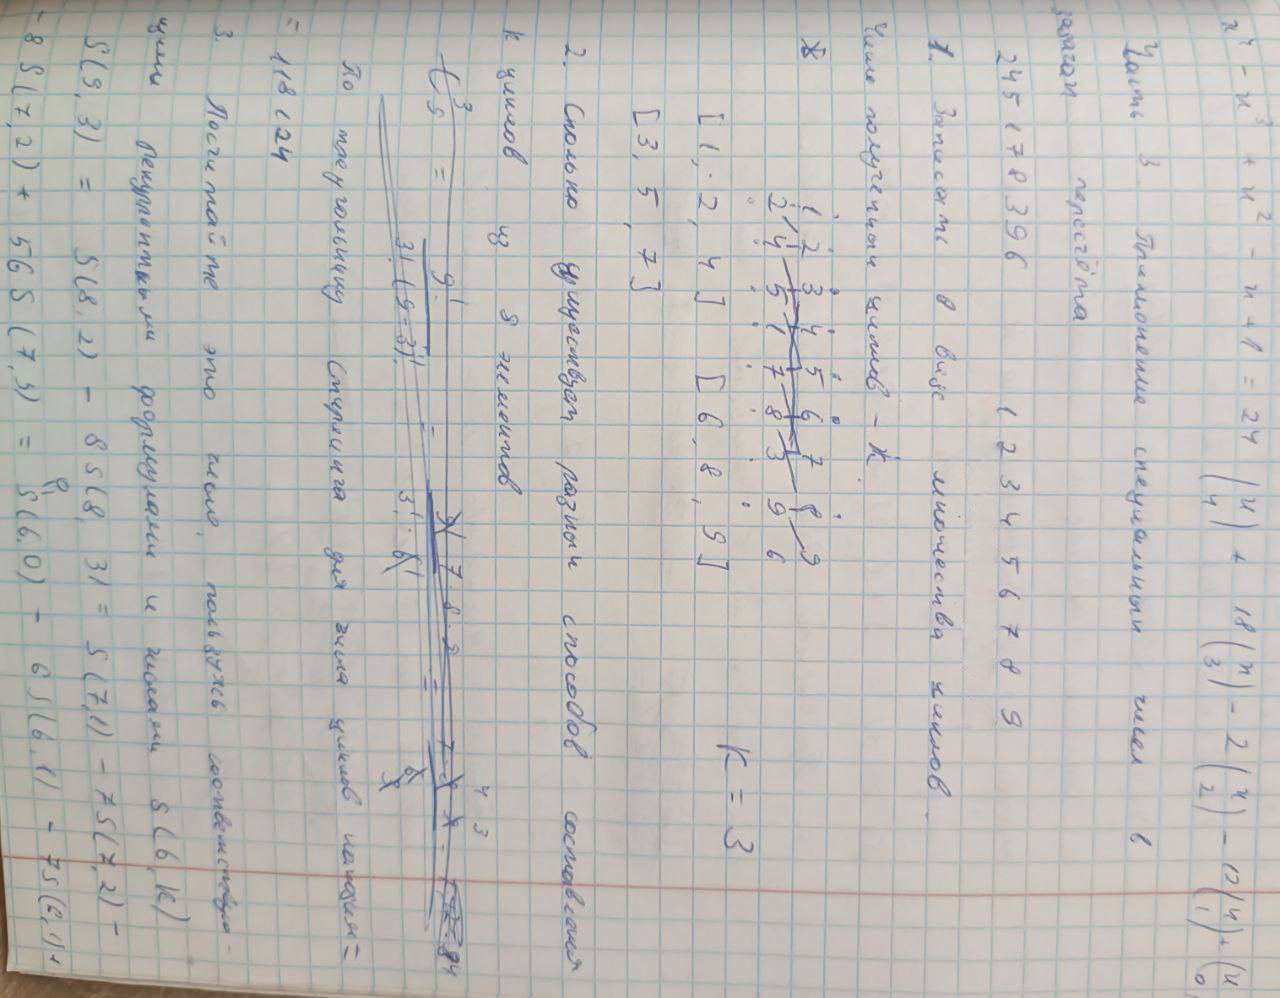 x⁴ - x³ + x² - x + 1 = 24 (x 4) + 18 (x 3) - 2 (x 2) - 0 (x 1) + (x 0)
Часть 3. Применение специальных чисел в
задачах пересчёта
2 4 5 1 7 8 3 9 6   1 2 3 4 5 6 7 8 9
1. Записать в виде множества циклов.
Число полученных циклов - k.
1 2 3 4 5 6 7 8 9
2 4 5 1 7 8 3 9 6
[1, 2, 4] [6, 8, 9] K = 3
[3, 5, 7]
2. Сколько существует разных способов составления
k циклов из 8 элементов
C³₉ = 9! / 3!·(9-3)! = 7·8·9 / 3!·6! = 84
По треугольнику Стирлинга для числа циклов находим =
= 118124
3. Посчитайте это число, пользуясь соответствую-
щими рекурентными формулами и числами S(6, k)
S(9, 3) = S(8, 2) - 8 S(8, 3) = S(7, 1) - 7 S(7, 2) -
- 8 S(7, 2) + 56 S(7, 3) = S(6, 0) - 6 S(6, 1) - 7 S(6, 1) +